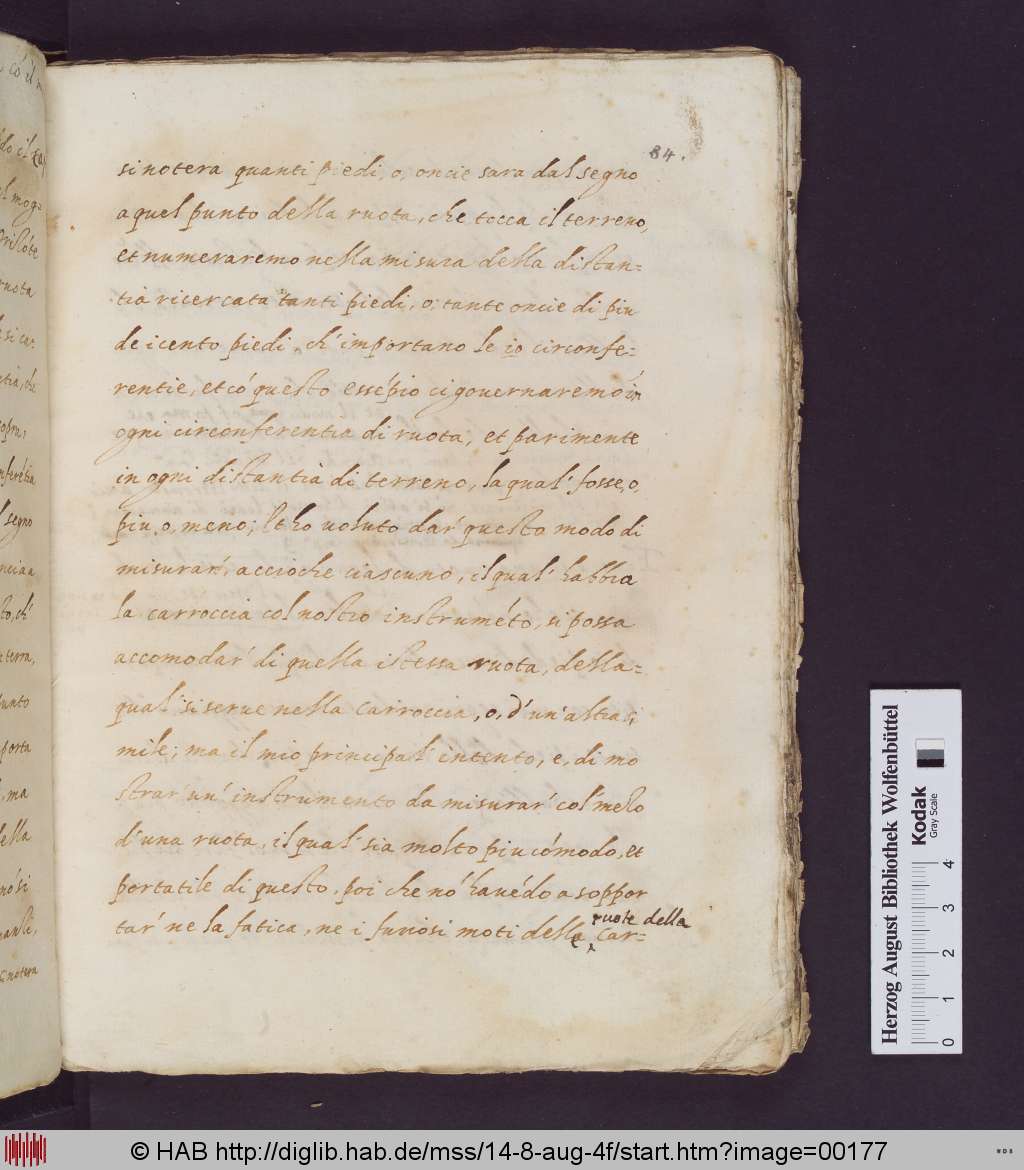 84.
si notera quanti piedi, o, oncie sara dal segno
a quel punto della ruota, che tocca il terreno,
et numeraremo nella misura della distan=
tia ricercata tanti piedi, o, tante oncie di piu
de i cento piedi, ch' importano le io circonfe=
rentie, et có questo essépio ci governaremo in
ogni circonferentia di ruota, et parimente
in ogni distantia di terreno, la qual' fosse, o,
piu, o, meno; Et ho voluto dar' questo modo di
misurar', accioche ciascuno, il qual' habbia
la carroccia col nostro instruméto, si possa
accomodar' di quella istessa ruota, della=
qual' si serve nella carroccia, o, d'un' altra si
mile; ma il mio principal' intento, e, di mo
strar' un' instrumento da misurar' col' mezo
d'una ruota, il qual' sia molto piu cómodo, et
portatile di questo, poi che nó havédo a soppor
tar' ne la fatica, ne i furiosi moti delle ruote della car=
có il
do il
l mog=
ruota
si car=
tia, che
sopra,
l segno
oncia a
to, ch'
terra,
punto
porta
, ma
della
nó si
notera
Herzog August Bibliothek Wolfenbüttel
Kodak
Gray Scale
0 1 2 3 4
© HAB http://diglib.hab.de/mss/14-8-aug-4f/start.htm?image=00177